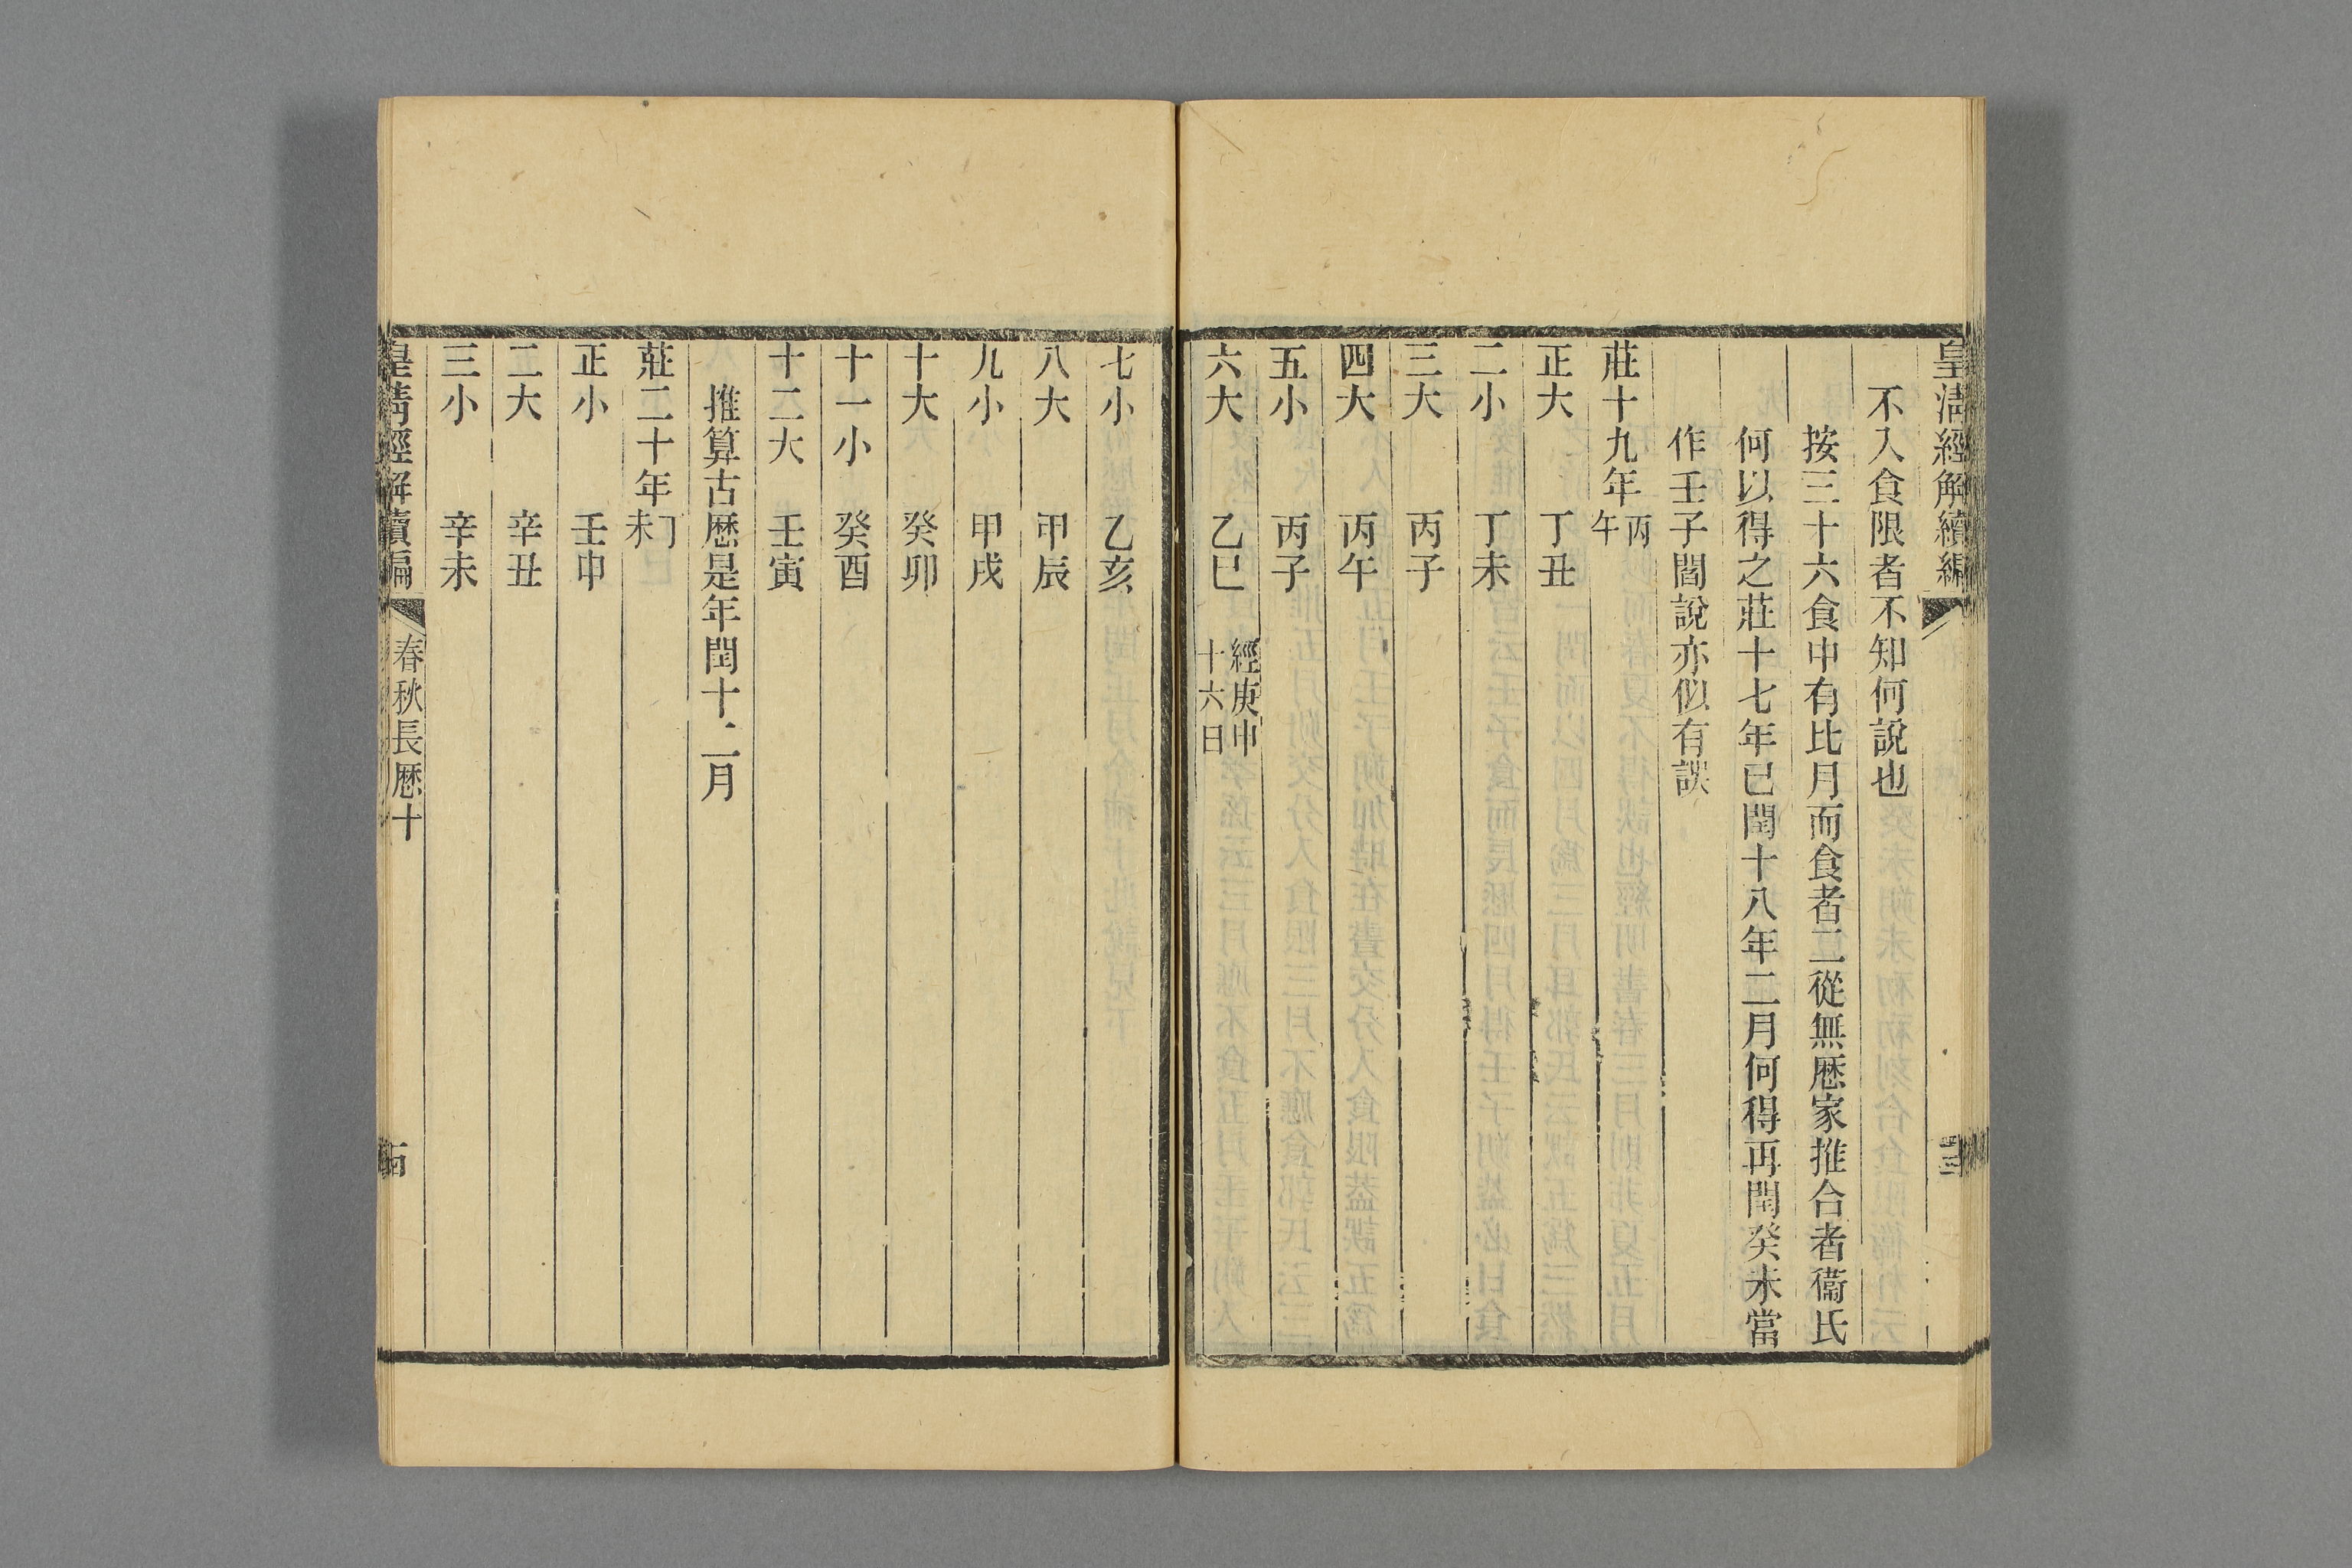 皇清經解續編
不入食限者不知何說也
按三十六食中有比月而食者二從無厯家推合者衞氏
何以得之莊十七年已閏十八年二月何得再閏癸未當
作壬子閻說亦似有誤
莊十九年丙午
正大 丁丑
二小 丁未
三大 丙子
四大 丙午
五小 丙子
六大 乙巳 經庚申十六日
七小 乙亥
八大 甲辰
九小 甲戌
十大 癸卯
十一小 癸酉
十二大 壬寅
推算古厯是年閏十二月
莊二十年丁未
正小 壬申
二大 辛丑
三小 辛未
皇清經解續編 春秋長厯十